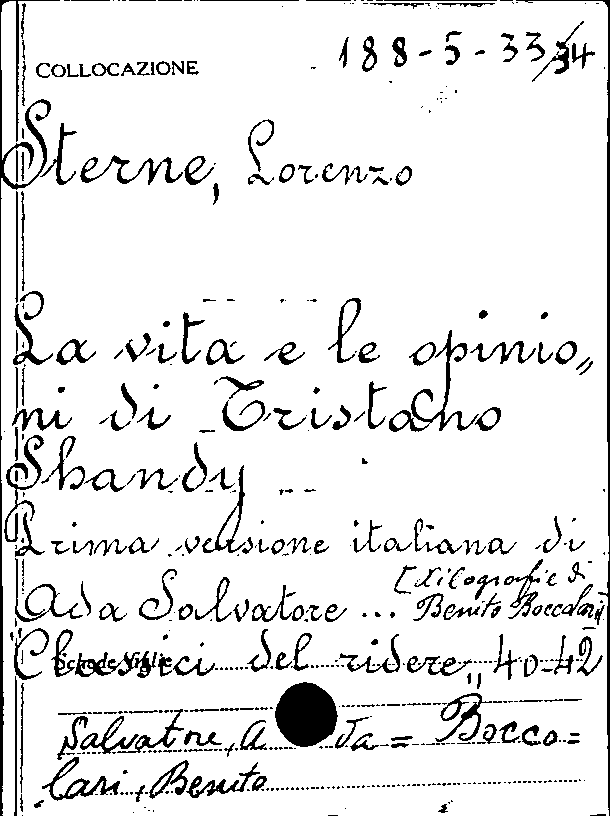 COLLOCAZIONE
188-5-33/34
Sterne, Lorenzo
La vita e le opinio„
ni di Tristano
Shandy
Prima versione italiana di
[Xilografie di
Ada Salvatore ... Benito Boccolari]
Classici del ridere„ 40-42
Schede Viglie
Salvatore, Ada = Bocco=
lari, Benito